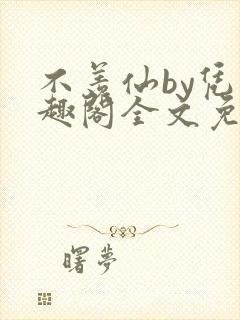 不羡仙by凭
趣阁全文免
曙梦